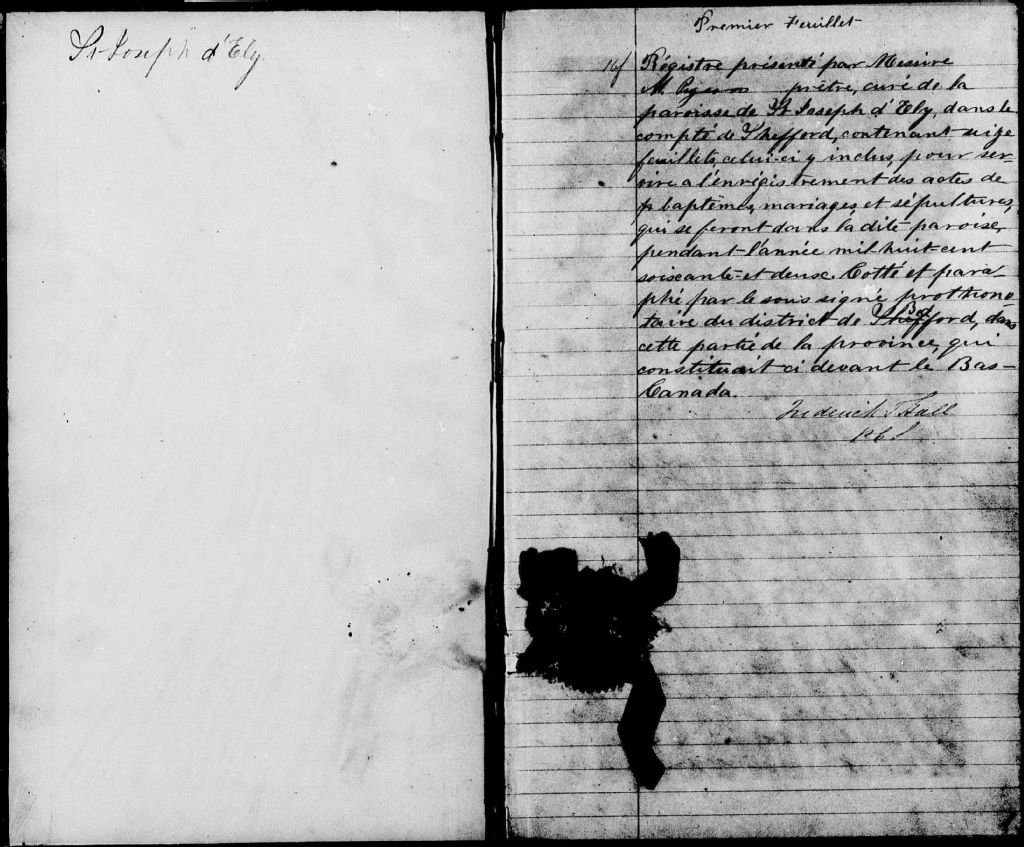 St Joseph d'Ely
Premier Feuillet
16f Régistre présenté par Messire
M. prêtre, curé de la
paroisse de St Joseph d'Ely, dans le
compté de Shefford, contenant seize
feuillets, celui-ci y inclus, pour ser-
vire a l'enrégistrement des actes de
p baptêmes, mariages, et sépultures,
qui se feront dans la dite paroise,
pendant l'année mil huit cent
soiscante-et deuse. Cotté et para
phé par le sous signé prothono
taire du district de Bed Shefford, dans
cette partie de la province, qui
constituait ci devant le Bas-
Canada.
Frederick Hall